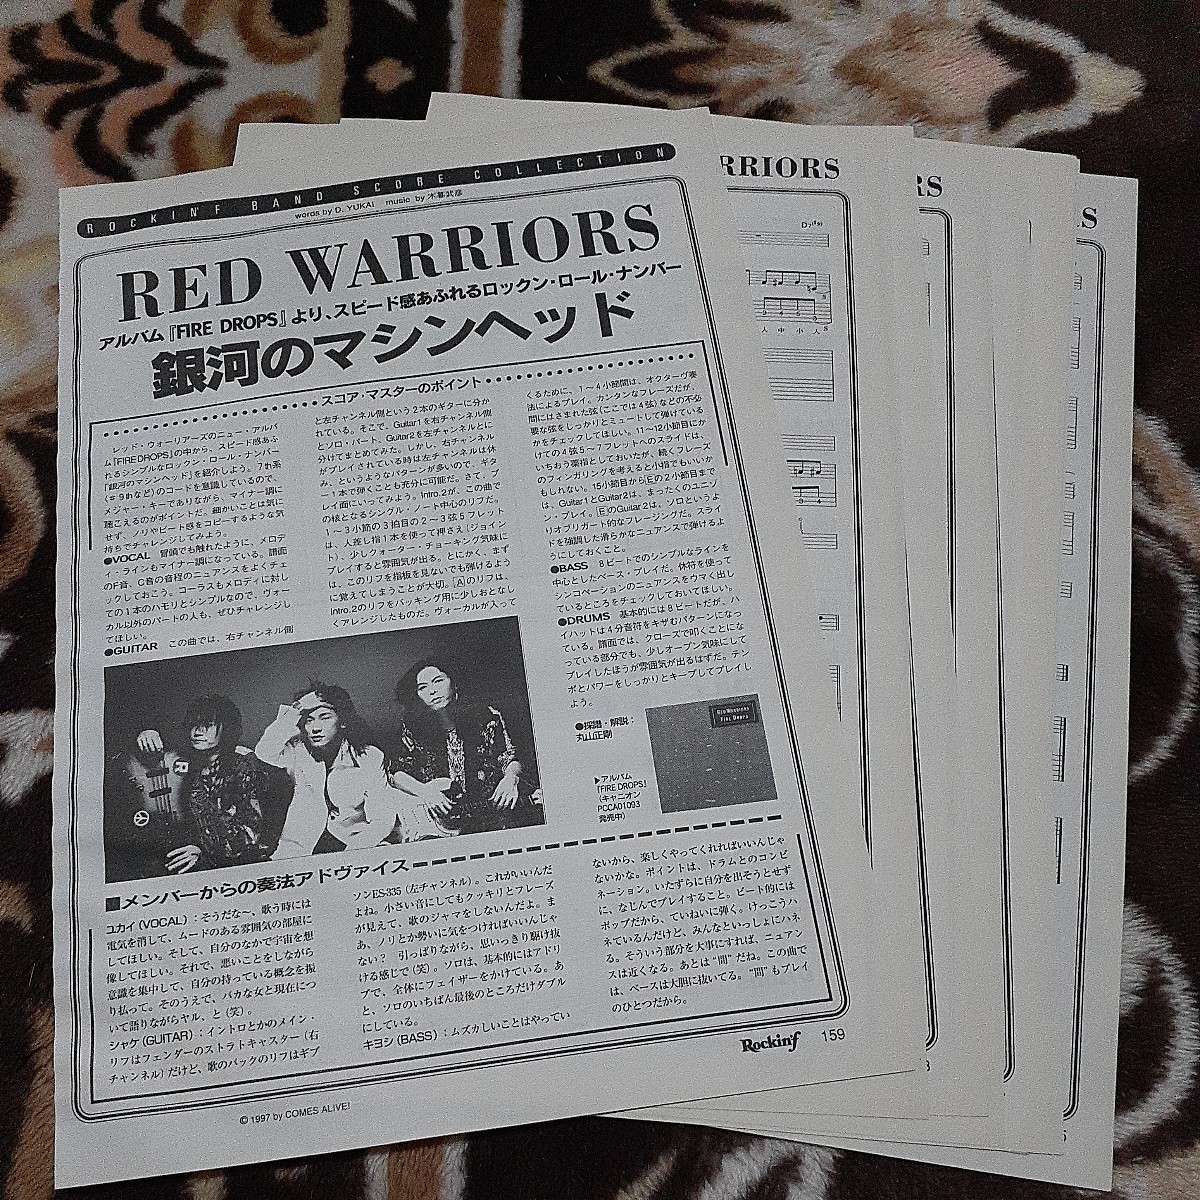 ROCKIN'F BAND SCORE COLLECTION
words by D. YUKAI music by 木暮武彦
RED WARRIORS
アルバム『FIRE DROPS』より、スピード感あふれるロックン・ロール・ナンバー
銀河のマシンヘッド
スコア・マスターのポイント
レッド・ウォーリアーズのニュー・アルバ
ム『FIRE DROPS』の中から、スピード感あふ
れるシンプルなロックン・ロール・ナンバー
「銀河のマシンヘッド」を紹介しよう。7th系
(#9thなど)のコードを意識しているので、
メジャー・キーでありながら、マイナー調に
聴こえるのがポイントだ。細かいことは気に
せず、ノリやビート感をコピーするような気
持ちでチャレンジしてみよう。
●VOCAL 冒頭でも触れたように、メロデ
ィ・ラインもマイナー調になっている。譜面
のF音、C音の音程のニュアンスをよくチェ
ックしておこう。コーラスもメロディに対し
ての1本のハモリとシンプルなので、ヴォー
カル以外のパートの人も、ぜひチャレンジし
てほしい。
●GUITAR この曲では、右チャンネル側
と左チャンネル側という2本のギターに分か
れている。そこで、Guitar1を右チャンネル側
とソロ・パート、Guitar2を左チャンネルとに
分けてまとめてみた。しかし、右チャンネル
がプレイされている時は左チャンネルは休
み、というようなパターンが多いので、ギタ
ー1本で弾くことも充分に可能だ。さて、プ
レイ面にいってみよう。Intro.2が、この曲で
の核となるシングル・ノート中心のリフだ。
1〜3小節の3拍目の2〜3弦5フレット
は、人差し指1本を使って押さえ(ジョイン
ト)、少しクォーター・チョーキング気味に
プレイすると雰囲気が出る。とにかく、まず
は、このリフを指板を見ないでも弾けるよう
に覚えてしまうことが大切。Aのリフは、
Intro.2のリフをバッキング用に少しおとなし
くアレンジしたものだ。ヴォーカルが入って
くるために、1〜4小節間は、オクターヴ奏
法によるプレイ。カンタンなフレーズだが、
間にはさまれた弦(ここでは4弦)などの不必
要な弦をしっかりとミュートして弾けている
かをチェックしてほしい。11〜12小節目にか
けての4弦5〜7フレットへのスライドは、
いちおう薬指としておいたが、続くフレーズ
のフィンガリングを考えると小指でもいいか
もしれない。15小節目からEの2小節目まで
は、Guitar1とGuitar2は、まったくのユニゾ
ン・プレイ。EのGuitar2は、ソロというよ
りオブリガート的なフレージングだ。スライ
ドを強調した滑らかなニュアンスで弾けるよ
うにしておくこと。
●BASS 8ビートでのシンプルなラインを
中心としたベース・プレイだ。休符を使って
シンコペーションのニュアンスをウマく出し
ているところをチェックしておいてほしい。
●DRUMS 基本的には8ビートだが、ハ
イハットは4分音符をキザむパターンになっ
ている。譜面では、クローズで叩くことにな
っている部分でも、少しオープン気味にして
プレイしたほうが雰囲気が出るはずだ。テン
ポとパワーをしっかりとキープしてプレイし
よう。
●採譜・解説：
丸山正剛
Red Warriors
Fire Drops
▶アルバム
『FIRE DROPS』
(キャニオン
PCCA01093
発売中)
■メンバーからの奏法アドヴァイス
ユカイ(VOCAL)：そうだな〜、歌う時には
電気を消して、ムードのある雰囲気の部屋に
してほしい。そして、自分のなかで宇宙を想
像してほしい。それで、悪いことをしながら
意識を集中して、自分の持っている概念を振
り払って。そのうえで、バカな女と現在につ
いて語りながらヤル、と(笑)。
シャケ(GUITAR)：イントロとかのメイン・
リフはフェンダーのストラトキャスター(右
チャンネル)だけど、歌のバックのリフはギブ
ソンES-335(左チャンネル)。これがいいんだ
よね。小さい音にしてもクッキリとフレーズ
が見えて、歌のジャマをしないんだよ。ま
あ、ノリとか勢いに気をつければいいんじゃ
ない？ 引っぱりながら、思いっきり駆け抜
ける感じで(笑)。ソロは、基本的にはアドリ
ブで、全体にフェイザーをかけている。あ
と、ソロのいちばん最後のところだけダブル
にしている。
キヨシ(BASS)：ムズカしいことはやってい
ないから、楽しくやってくれればいいんじゃ
ないかな。ポイントは、ドラムとのコンビ
ネーション。いたずらに自分を出そうとせず
に、なじんでプレイすること。ビート的には
ポップだから、ていねいに弾く。けっこうハ
ネているんだけど、みんなといっしょにハネ
る。そういう部分を大事にすれば、ニュアン
スは近くなる。あとは“間”だね。この曲で
は、ベースは大胆に抜いてる。“間”もプレイ
のひとつだから。
Rockin'f 159
© 1997 by COMES ALIVE!
RRIORS
人 中 小 人
RS
S